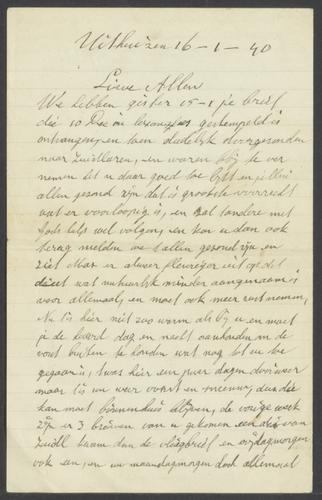 Uithuizen 16-1-40
Lieve Allen
We hebben gister 15-1 je brief
die 10 Dec in gestempeld is
ontvangen, en toen dadelijk doorgezonden
naar Zuidlaren, en waren blij te ver
nemen dat u daar goed en jullie
allen gezond zijn dat is grootste voorrecht
wat er voorloopig is, en zal tandere met
Gods hulp wel volgen, en kan u dan ook
terug melden we allen gezond zijn en
ziet Max er alweer fleuriger uit op dit
dieet wat natuurlijk minder aangenaam is
voor allemaal, en moet ook meer rust nemen,
Nu is hier niet zoo warm als bij u en moet
je de haard dag en nacht aanhouden om de
vorst buiten te houden wat nog tot nu toe
gegaan is, twas hier een paar dagen dooiweer
maar tis nu weer vorst en sneeuw, dus die
kan moet binnenshuis blijven, de vorige week
zijn er 3 brieven van u gekomen een van
Zuidl kwam dan de vliegbrief en vrijdagmorgen
ook een, en nu maandagmorgen doch allemaal